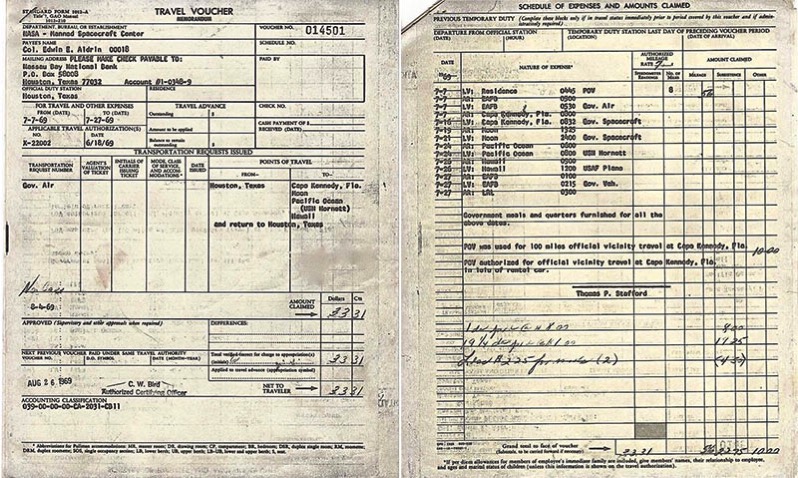 STANDARD FORM 1012-A
Title 7, GAO Manual
1012-210
TRAVEL VOUCHER
MEMORANDUM
DEPARTMENT, BUREAU, OR ESTABLISHMENT
NASA - Manned Spacecraft Center
VOUCHER NO. 014501
PAYEE'S NAME
Col. Edwin E. Aldrin 00018
SCHEDULE NO.
MAILING ADDRESS PLEASE MAKE CHECK PAYABLE TO:
Nassau Bay National Bank
P.O. Box 58008
Houston, Texas 77032 Account #1-0348-9
PAID BY
OFFICIAL DUTY STATION
Houston, Texas
RESIDENCE
FOR TRAVEL AND OTHER EXPENSES
FROM (DATE) TO (DATE)
7-7-69 7-27-69
TRAVEL ADVANCE
Outstanding $
CHECK NO.
APPLICABLE TRAVEL AUTHORIZATION(S)
NO. DATE
X-22002 6/18/69
Amount to be applied
Balance to remain outstanding $
CASH PAYMENT OF $
RECEIVED (DATE)
TRANSPORTATION REQUESTS ISSUED
TRANSPORTATION REQUEST NUMBER
AGENT'S VALUATION OF TICKET
INITIALS OF CARRIER ISSUING TICKET
MODE, CLASS OF SERVICE, AND ACCOMMODATIONS *
DATE ISSUED
POINTS OF TRAVEL
FROM— TO—
Gov. Air Houston, Texas Cape Kennedy, Fla.
Moon
Pacific Ocean
(USN Hornett)
Hawaii
and return to Houston, Texas
8-4-69
AMOUNT CLAIMED
Dollars Cts
33 31
APPROVED (Supervisory and other approvals when required)
DIFFERENCES:
NEXT PREVIOUS VOUCHER PAID UNDER SAME TRAVEL AUTHORITY
VOUCHER NO. D.O. SYMBOL DATE (MONTH-YEAR)
Total verified correct for charge to appropriation(s)
33 31
Applied to travel advance (appropriation symbol)
AUG 26 1969
C. W. Bird
Authorized Certifying Officer
NET TO TRAVELER
33 31
ACCOUNTING CLASSIFICATION
039-00-00-00-CA-2031-CB11
* Abbreviations for Pullman accommodations: MR, master room; DR, drawing room; CP, compartment; BR, bedroom; DSR, duplex single room; RM, roomette; DRM, duplex roomette; SOS, single occupancy section; LB, lower berth; UB, upper berth; LB-UB, lower and upper berth; S, seat.
SCHEDULE OF EXPENSES AND AMOUNTS CLAIMED
PREVIOUS TEMPORARY DUTY (Complete these blocks only if in travel status immediately prior to period covered by this voucher and if administratively required).
DEPARTURE FROM OFFICIAL STATION
(DATE) (HOUR)
TEMPORARY DUTY STATION LAST DAY OF PRECEDING VOUCHER PERIOD
(LOCATION) (DATE OF ARRIVAL)
DATE
NATURE OF EXPENSE*
AUTHORIZED MILEAGE RATE 7
SPEEDOMETER READINGS
NO. OF MILES
AMOUNT CLAIMED
MILEAGE SUBSISTENCE OTHER
'69
7-7 LV: Residence 0445 POV 8 56
7-7 AR: EAFB
7-7 LV: EAFB 0530 Gov. Air
7-7 AR: Cape Kennedy, Fla.
7-16 LV: Cape Kennedy, Fla. 0832 Gov. Spacecraft
7-19 AR: Moon 1325
7-21 LV: Moon 2400 Gov. Spacecraft
7-24 AR: Pacific Ocean
7-24 LV: Pacific Ocean 0800 USN Hornett
7-26 AR: Hawaii
7-26 LV: Hawaii 1200 USAF Plane
7-27 AR: EAFB 0100
7-27 LV: EAFB 0215 Gov. Veh.
7-27 AR: LRL 0300
Government meals and quarters furnished for all the
above dates.
POV was used for 100 miles official vicinity travel at Cape Kennedy, Fla. 10.00
POV authorized for official vicinity travel at Cape Kennedy, Fla.
in lulu of rental car.
Thomas P. Stafford
8.00
(4.50)
Grand total to face of voucher
(Subtotals, to be carried forward if necessary)
33.31
* If per diem allowances for members of employee's immediate family are included, give members' names, their relationship to employee, and ages and marital status of children (unless this information is shown on the travel authorization).